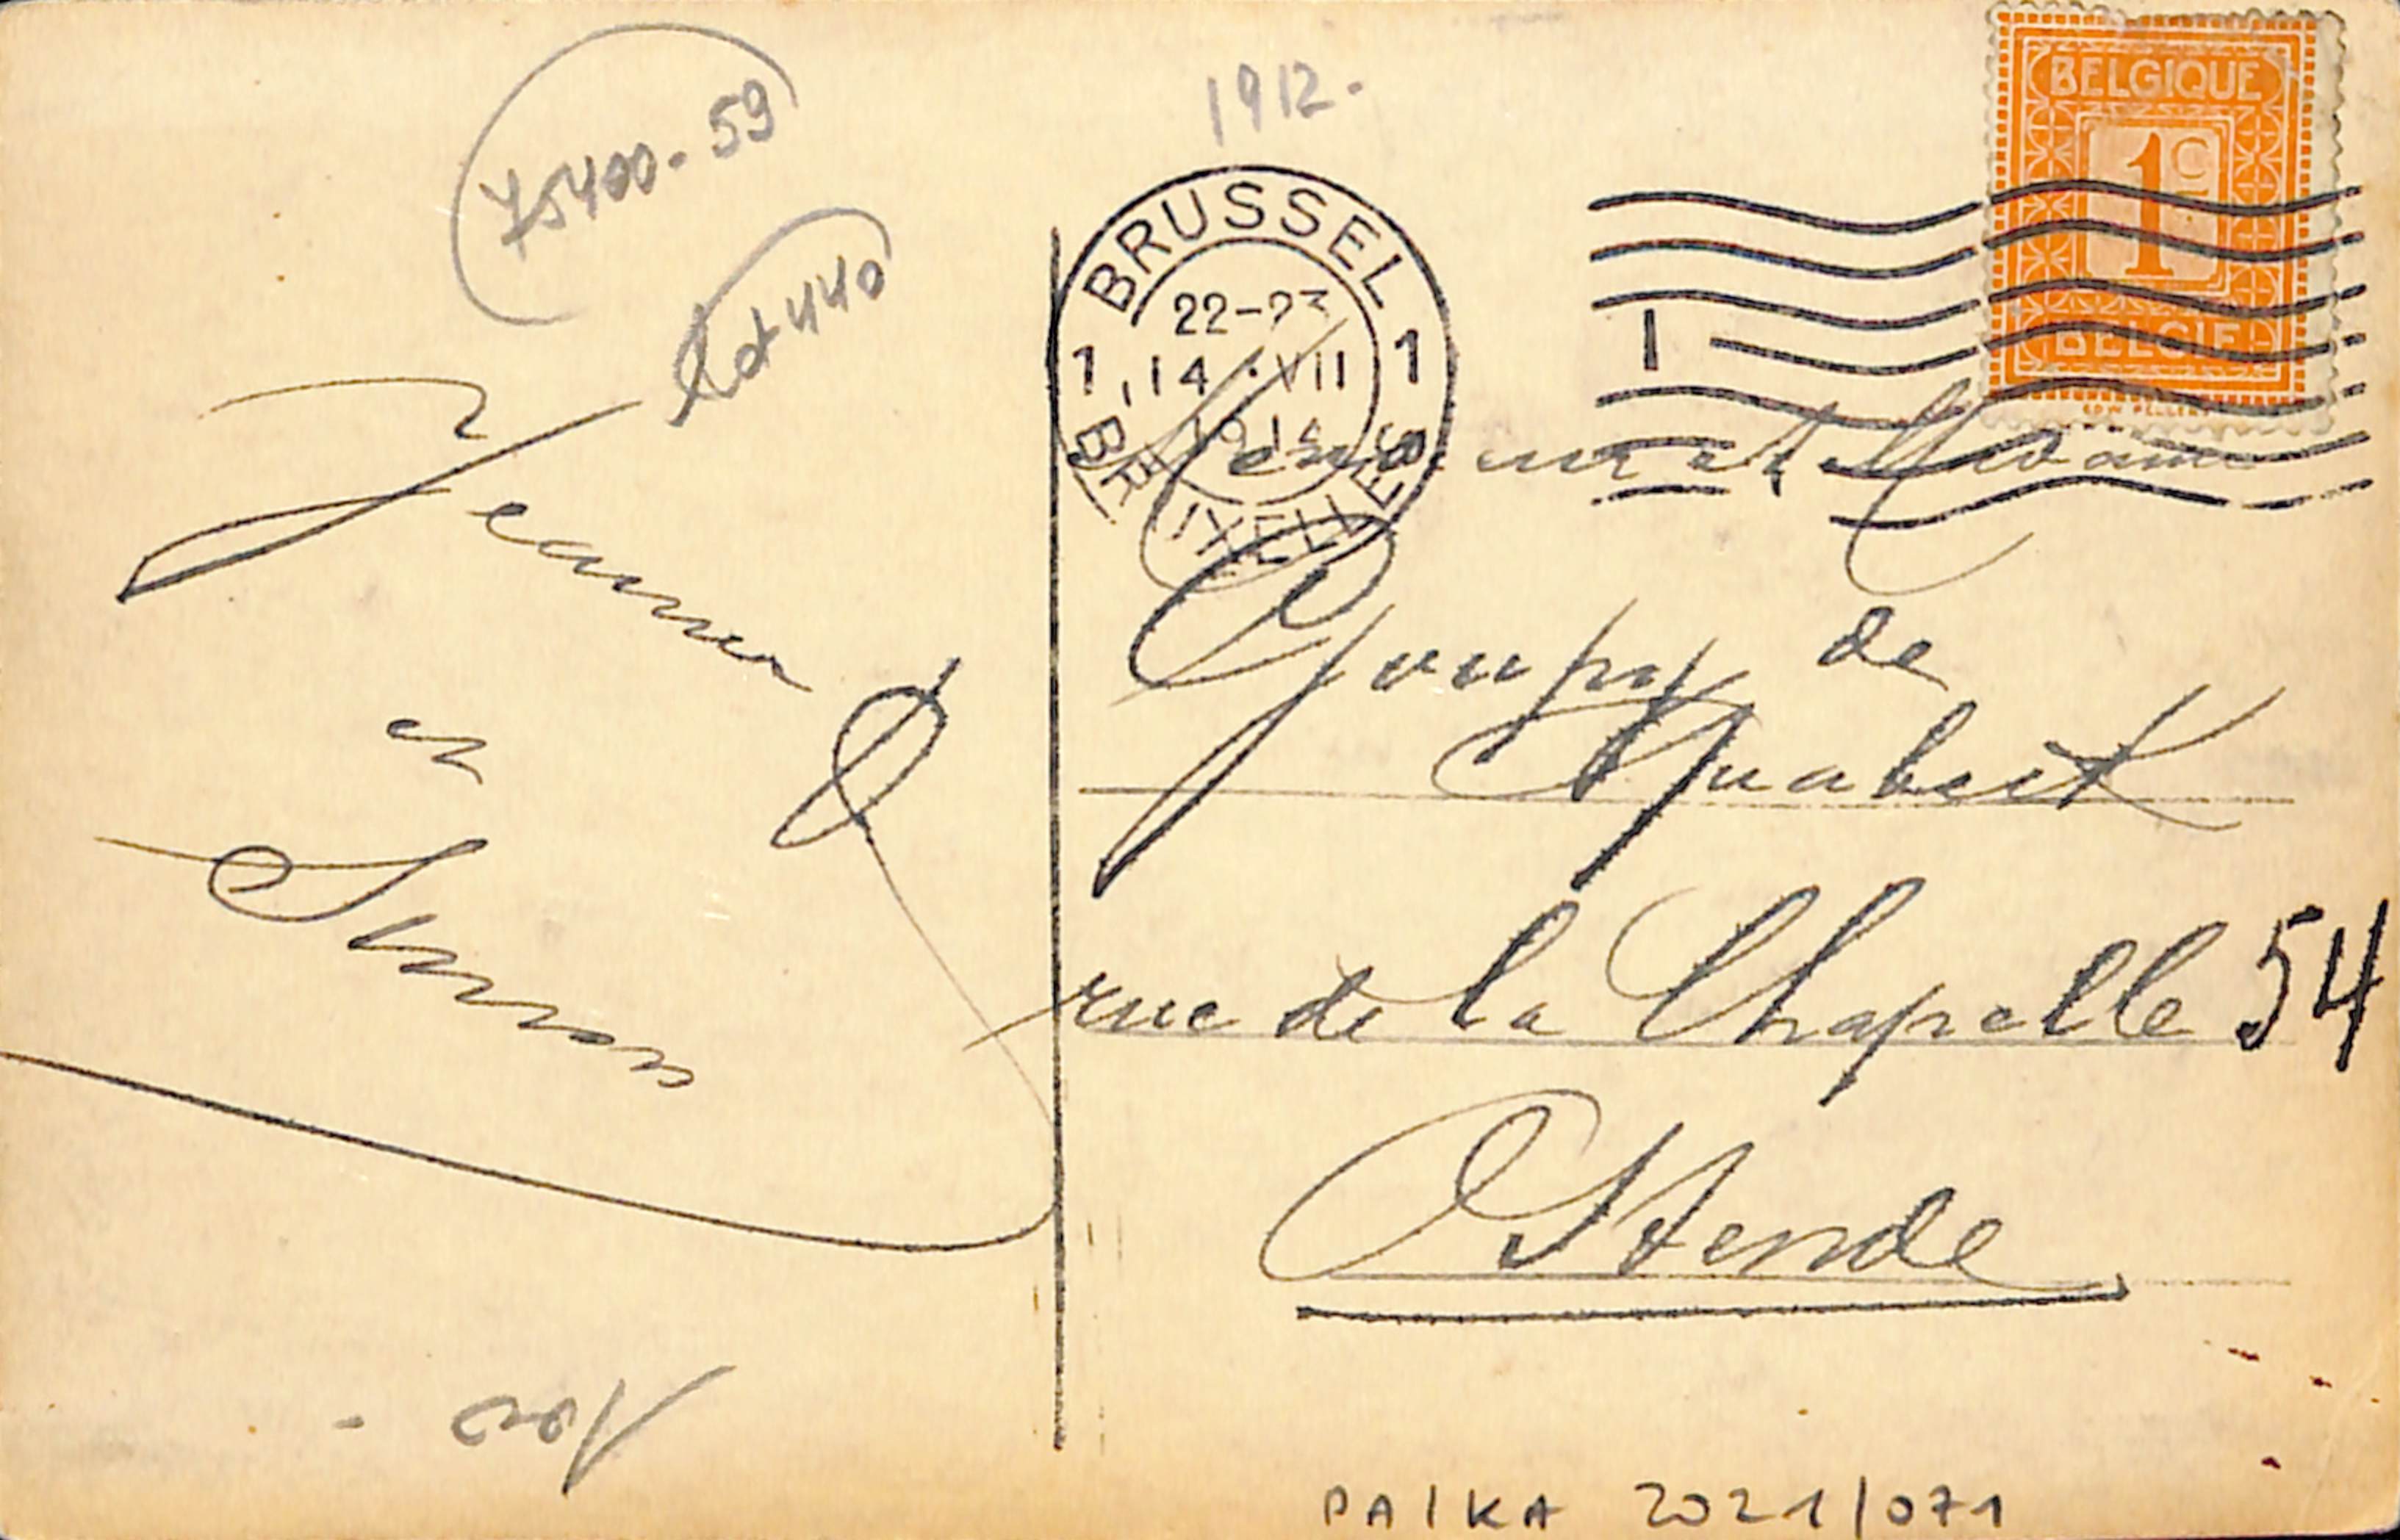 75400-59
Lot 440
1912.
BELGIQUE
1c
BELGIË
BRUSSEL
22-23
1 14 · VII 1
1914
BRUXELLES
1
Jeanne
et
Monsieur et Madame
Goupy de
Quabeek
rue de la Chapelle 54
Ostende
PA/KA 2021/071